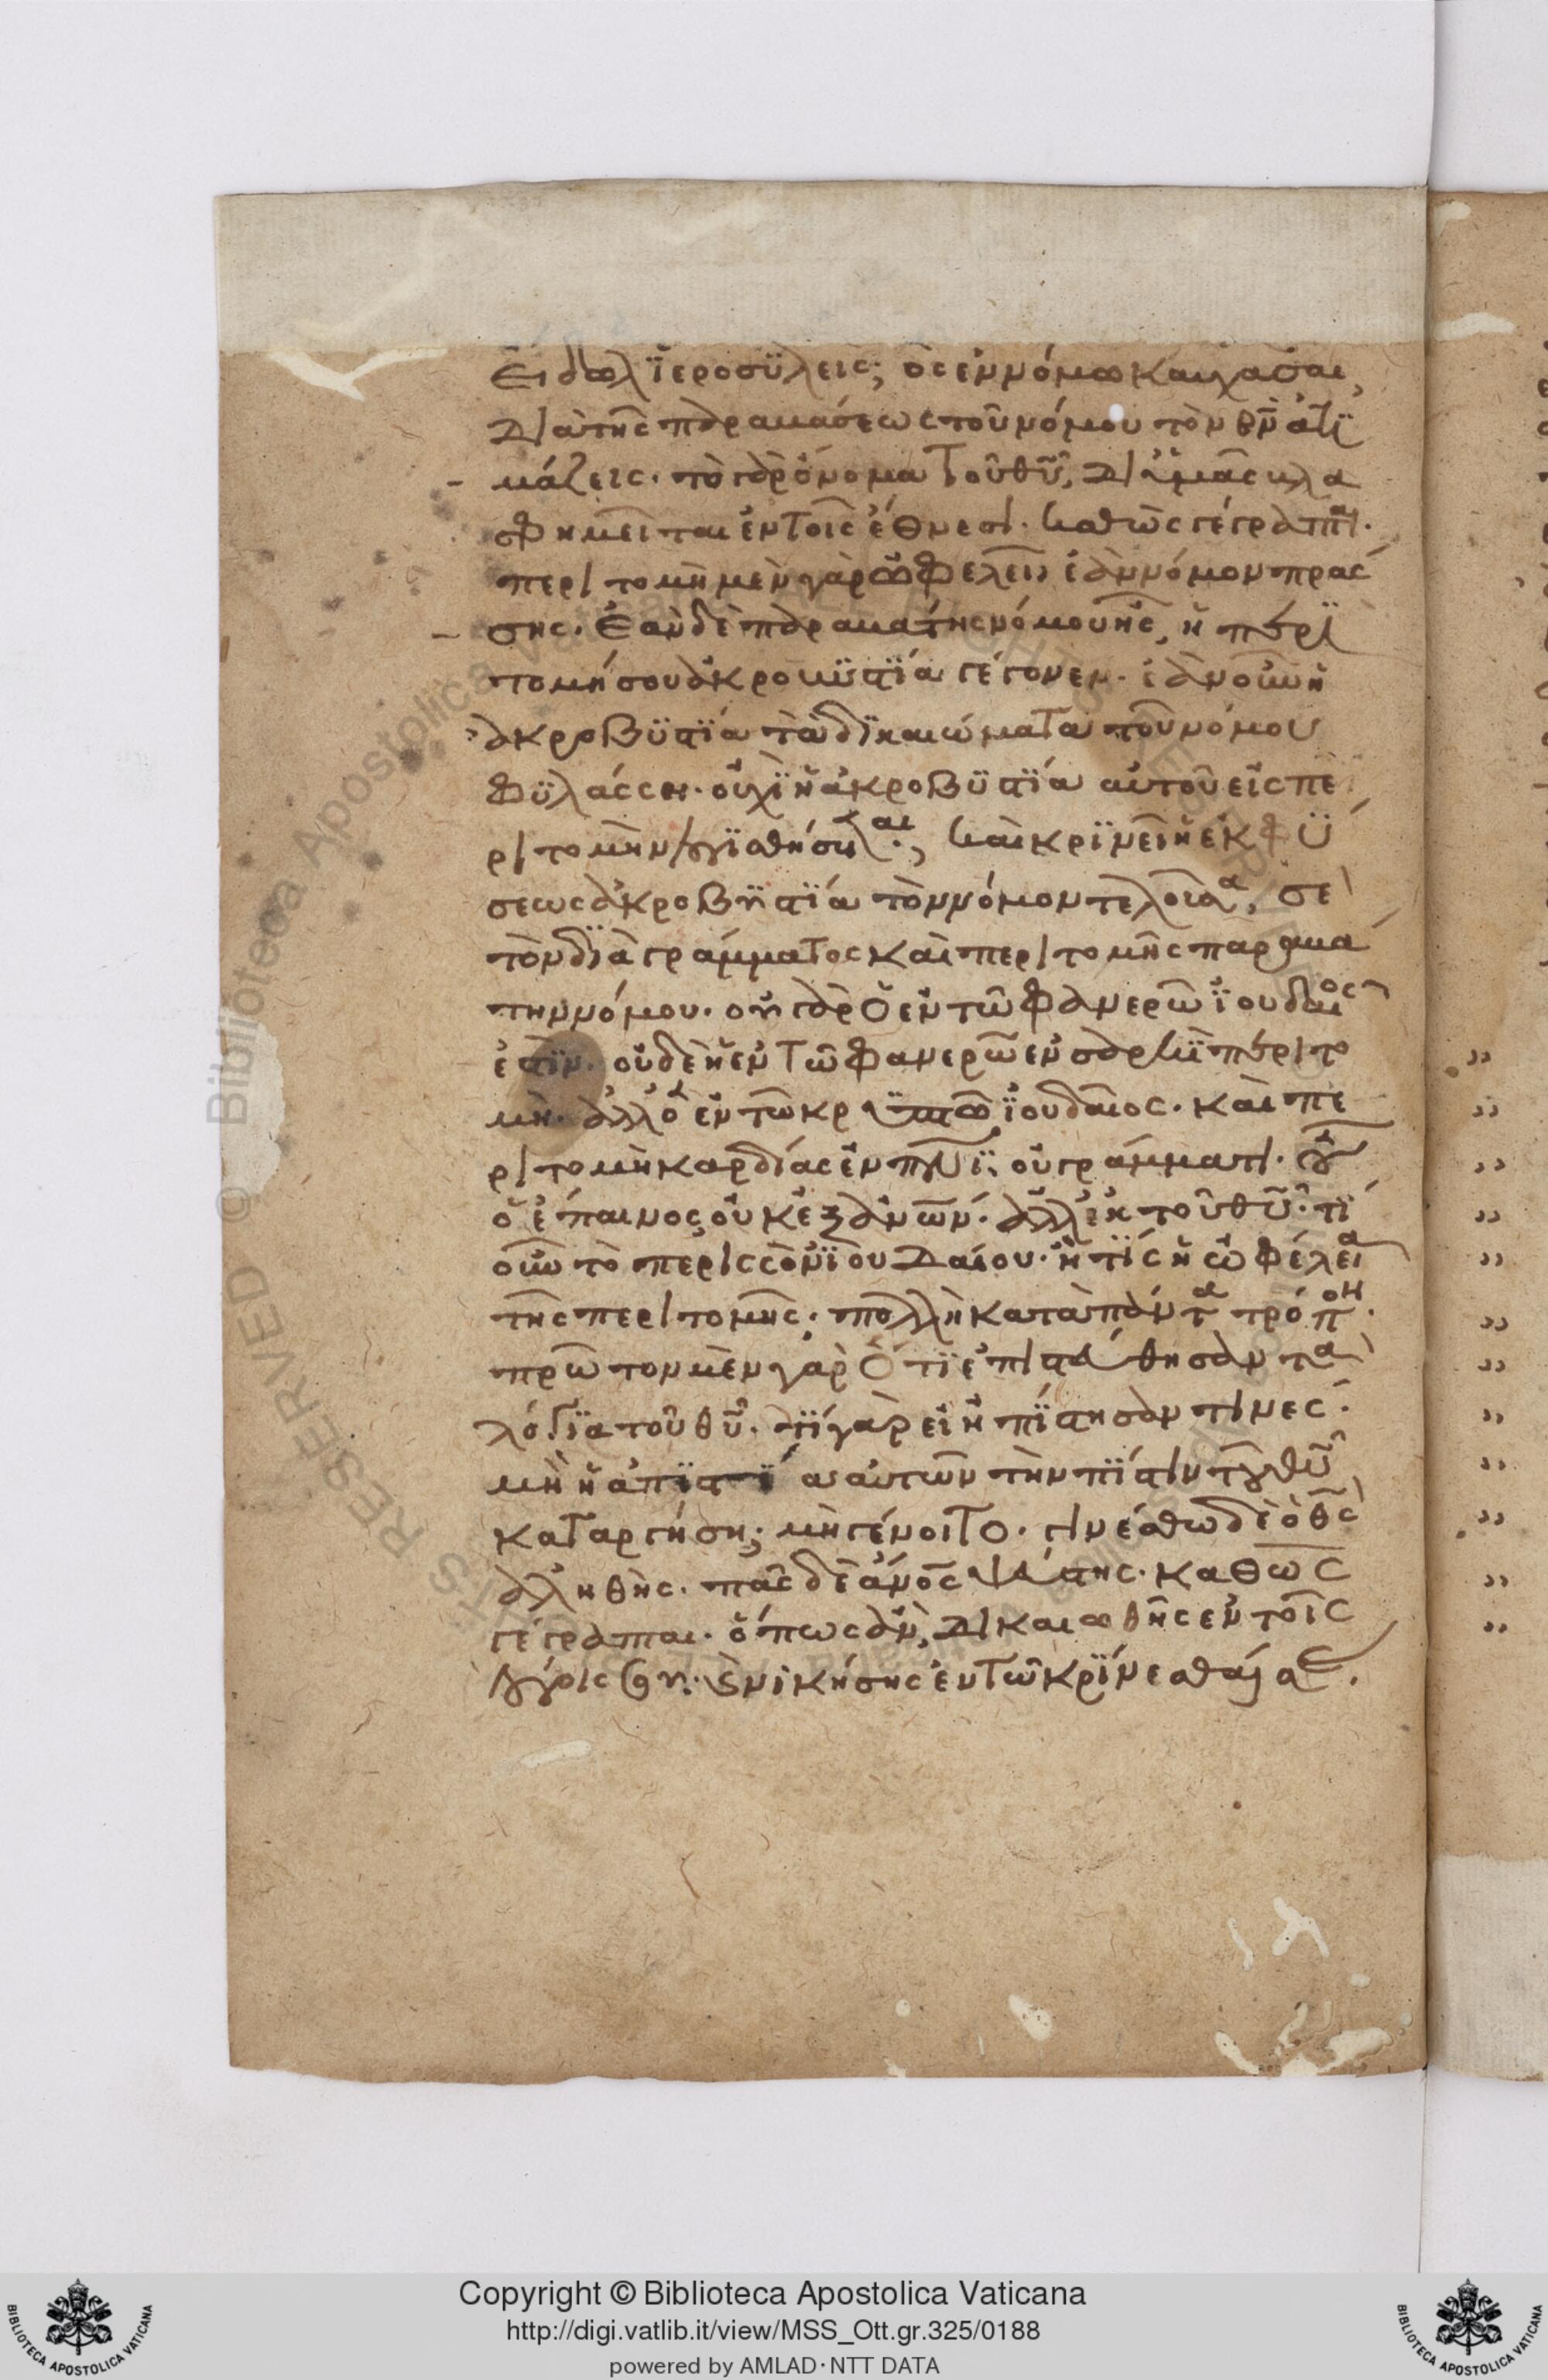 εἰδωλ ϊεροσϋλεις; ὃς ἐν νόμω καυχάσαι,
διὰ τῆς παραβάσεως τοῦ νόμου τὸν θ̅ν̅ ἀτϊ
μάζεις. τὸ γὰρ ὄνομα τοῦ θ̅υ̅, δι ὑμᾶς βλα
σφημεῖται ἐν τοῖς ἔθνεσι. καθὼς γέγραπται.
περιτομὴ μὲν γὰρ ὠφελεῖ, ἐὰν νόμον πράσ
σης. ἐὰν δὲ παραβάτης νόμου ἦς, ἡ περϊ
τομή σου ἀκροβϋστϊα γέγονεν. ἐὰν οὖν ἡ
ἀκροβϋστϊα τὰ δϊκαιώματα τοῦ νόμου
φϋλάσση. οὐχϊ ἡ ἀκροβϋστϊα αὐτοῦ εἰς πε
ριτομὴν λογϊσθήσεται; καὶ κρϊνεῖ ἡ ἐκ φϋ
σεως ἀκροβηστϊα τὸν νόμον τελοῦσα, σε
τὸν δϊὰ γράμματος καὶ περιτομῆς παραβά
την νόμου. οὐ γὰρ ὁ ἐν τῶ φανερῶ ϊουδαῖος
ἐστϊν. οὐδὲ ἡ ἐν τῶ φανερῶ ἐν σαρκϊ περιτο
μὴ. ἀλλ ὁ ἐν τῶ κρϋπτῶ ϊουδαῖος. καὶ πε
ριτομὴ καρδίας ἐν π̅ν̅ϊ, οὐ γράμματι. οὗ
ὁ ἔπαινος οὐκ ἐξ ἀν̅ων. ἀλλ ἐκ τοῦ θ̅υ̅. τί
οὖν τὸ περισσὸν ϊουδαίου. ἢ τϊς ἡ ὠφέλεια
τῆς περιτομῆς; πολλὴ κατὰ πάντα τρόπον.
πρῶτον μὲν γὰρ ὅτϊ ἐπιστεύθησαν τὰ
λόγϊα τοῦ θ̅υ̅. τϊ γὰρ εἰ ἠπϊστησαν τινες.
μὴ ἡ ἀπϊστϊα αὐτῶν τὴν πϊστιν τοῦ θ̅υ̅
καταργήση; μὴ γένοιτο. γινέσθω δὲ ὁ θ̅ς̅
ἀληθὴς. πᾶς δὲ ἄν̅ος ψεύστης. καθὼς
γέγραπται. ὅπως ἂν δικαιωθῆς ἐν τοῖς
λόγοις σου. καὶ νικήσης ἐν τῶ κρϊνεσθαί σε.
Copyright © Biblioteca Apostolica Vaticana
http://digi.vatlib.it/view/MSS_Ott.gr.325/0188
powered by AMLAD·NTT DATA
BIBLIOTECA APOSTOLICA VATICANA
BIBLIOTECA APOSTOLICA VATICANA